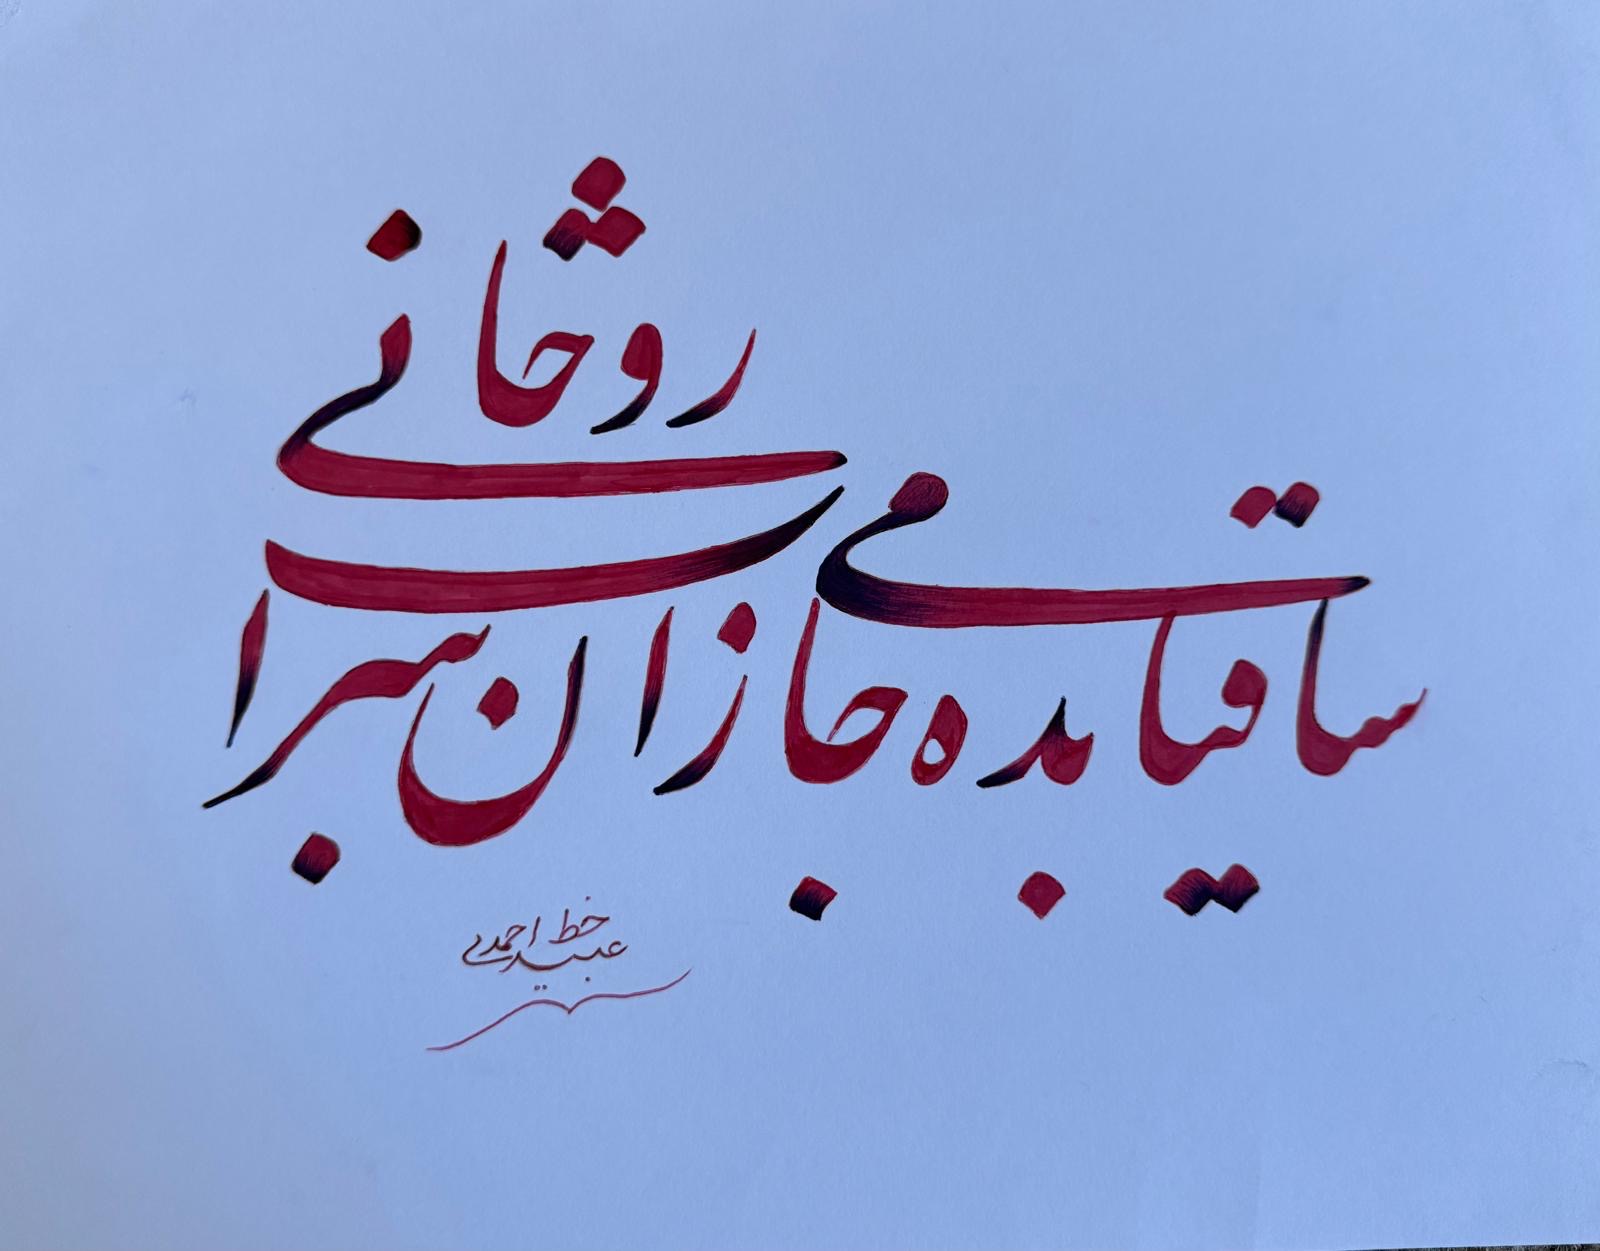 ساقیا بده جامی زان شراب روحانی
خط عبید احمدی